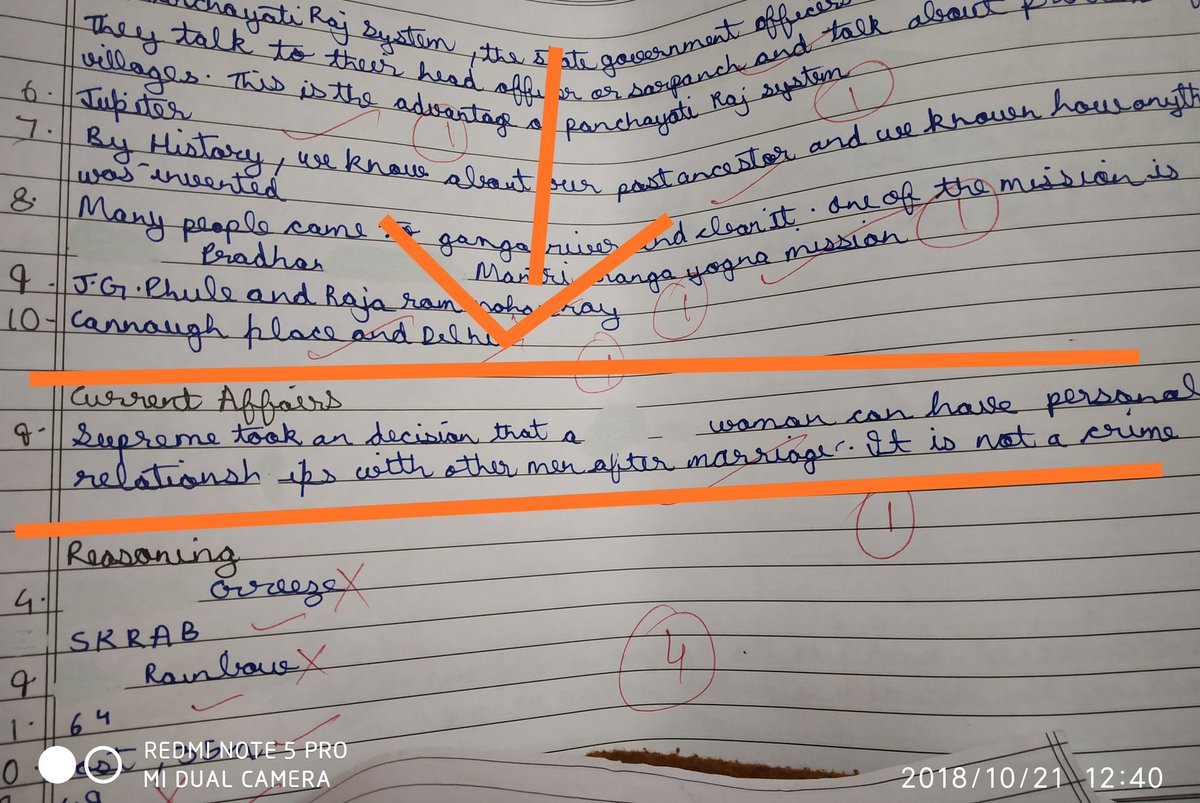 Panchayati Raj system, the state government officers
They talk to their head officer or sarpanch and talk about
villages. This is the advantage of panchayati Raj system
6. Jupiter
7. By History, we know about our past ancestor and we known how anyth
was invented
8. Many people came to ganga river and clean it. one of the mission is
Pradhan Mantri Ganga yogna mission
9. J.G. Phule and Raja ram mohan ray
10- Cannaugh place and Delhi
Current Affairs
9. Supreme took an decision that a woman can have personal
relationsh ips with other men after marriage. It is not a crime
Reasoning
4. Greeze
SKRAB
9. Rainbow
1. 64
REDMI NOTE 5 PRO
MI DUAL CAMERA
2018/10/21 12:40
1
1
1
1
1
1
4